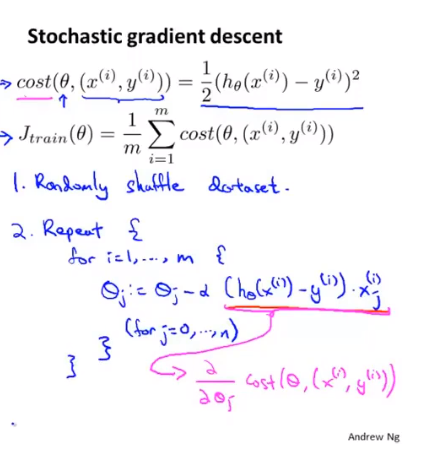 Stochastic gradient descent
→ cost(θ, (x⁽ⁱ⁾, y⁽ⁱ⁾)) = 1/2 (hθ(x⁽ⁱ⁾) − y⁽ⁱ⁾)²
→ Jtrain(θ) = 1/m ∑ᵢ₌₁ᵐ cost(θ, (x⁽ⁱ⁾, y⁽ⁱ⁾))
1. Randomly shuffle dataset.
2. Repeat {
for i=1,..., m {
θj := θj − α (hθ(x⁽ⁱ⁾) − y⁽ⁱ⁾) · xj⁽ⁱ⁾
(for j=0,...,n)
}
}
∂/∂θj cost(θ, (x⁽ⁱ⁾, y⁽ⁱ⁾))
Andrew Ng